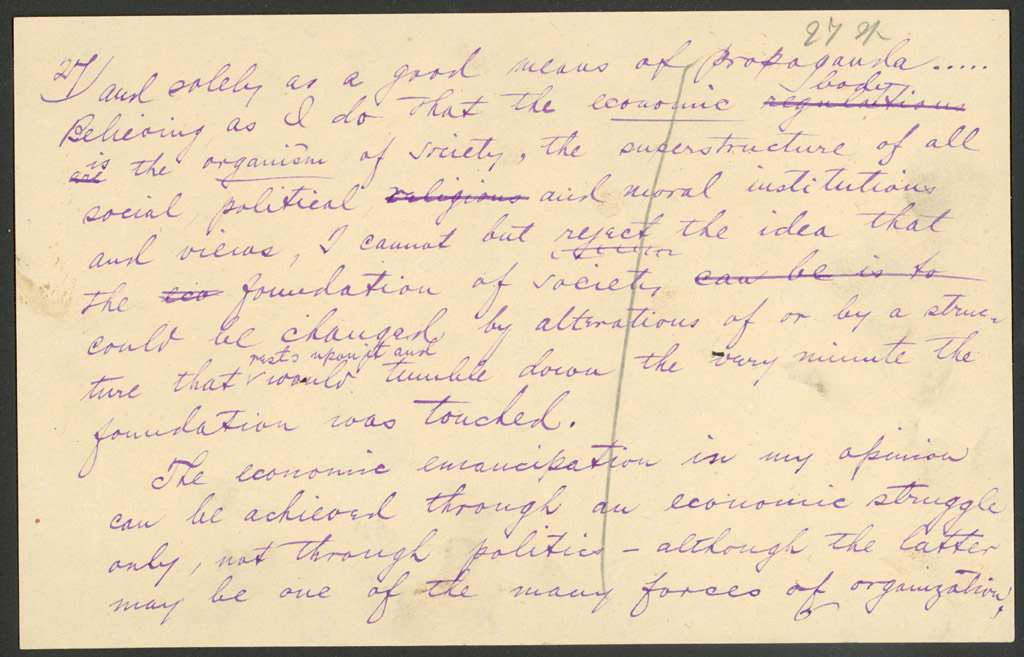 27
27/ and solely as a good means of propaganda.....
Believing as I do that the economic regulations body
are is the organism of society, the superstructure of all
social, political, religious and moral institutions
and views, I cannot but reject the idea that
the eco foundation of society can be is to
could be changed by alterations of or by a struc-
ture that rests upon it and would tumble down the very minute the
foundation was touched.
The economic emancipation in my opinion
can be achieved through an economic struggle
only, not through politics – although the latter
may be one of the many forces of organization,